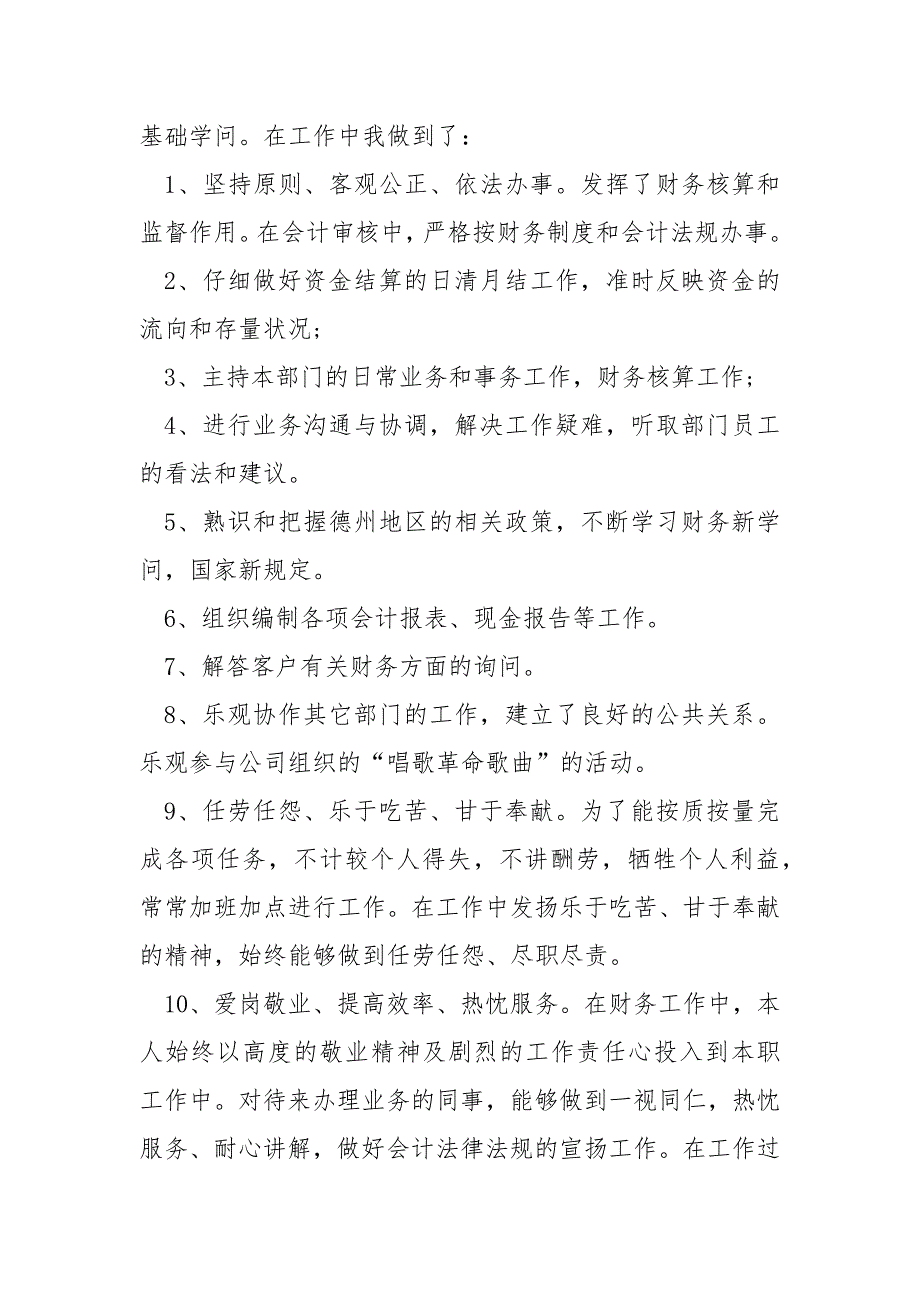 基础学问。在工作中我做到了：
1、坚持原则、客观公正、依法办事。发挥了财务核算和
监督作用。在会计审核中，严格按财务制度和会计法规办事。
2、仔细做好资金结算的日清月结工作，准时反映资金的
流向和存量状况;
3、主持本部门的日常业务和事务工作，财务核算工作;
4、进行业务沟通与协调，解决工作疑难，听取部门员工
的看法和建议。
5、熟识和把握德州地区的相关政策，不断学习财务新学
问，国家新规定。
6、组织编制各项会计报表、现金报告等工作。
7、解答客户有关财务方面的询问。
8、乐观协作其它部门的工作，建立了良好的公共关系。
乐观参与公司组织的“唱歌革命歌曲”的活动。
9、任劳任怨、乐于吃苦、甘于奉献。为了能按质按量完
成各项任务，不计较个人得失，不讲酬劳，牺牲个人利益，
常常加班加点进行工作。在工作中发扬乐于吃苦、甘于奉献
的精神，始终能够做到任劳任怨、尽职尽责。
10、爱岗敬业、提高效率、热忱服务。在财务工作中，本
人始终以高度的敬业精神及剧烈的工作责任心投入到本职
工作中。对待来办理业务的同事，能够做到一视同仁，热忱
服务、耐心讲解，做好会计法律法规的宣扬工作。在工作过